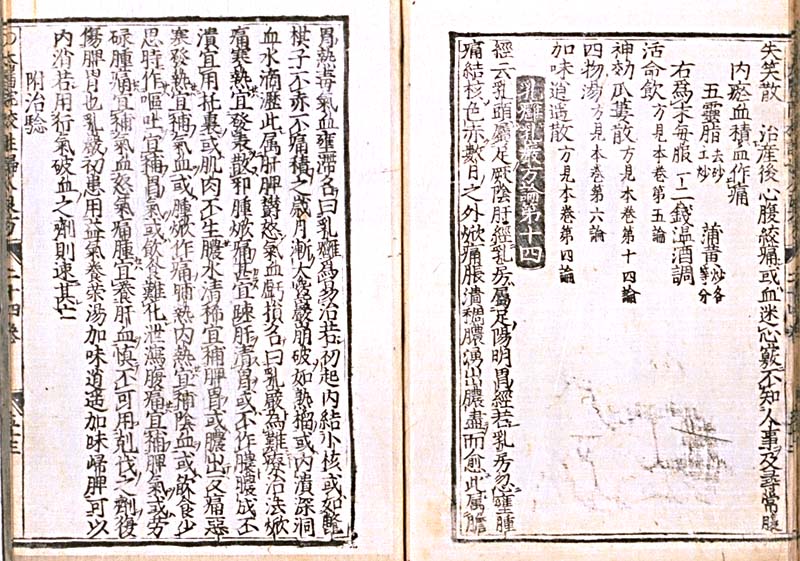 失笑散 治産後心腹絞痛或血迷心竅不知人事及尋常腹
内瘀血積血作痛
五靈脂去砂工炒 蒲黄炒各等分
右為末每服一二錢温酒調
活命飲方見本卷第五論
神効瓜蔞散方見本卷第十四論
四物湯方見本卷第六論
加味逍遥散方見本卷第四論
乳癰乳巖方論第十四
經云乳頭屬足厥陰肝經乳房屬足陽明胃經若乳房忽壅腫
痛結核色赤數日之外焮痛脹潰稠膿湧出膿盡而愈此属膽
胃熱毒氣血壅滯名曰乳癰為易治若初起内結小核或如鱉
棋子不赤不痛積之歲月漸大巉巖崩破如熟榴或内潰深洞
血水滴瀝此属肝脾鬱怒氣血虧損名曰乳巖為難療治法焮
痛寒熱宜發表散邪腫焮痛甚宜踈肝清胃或不作膿膿成不
潰宜用托裏或肌肉不生膿水清稀宜補脾胃或膿出反痛惡
寒發熱宜補氣血或腫焮作痛晡熱内熱宜補陰血或飲食少
思時作嘔吐宜補胃氣或飲食難化泄瀉腹痛宜補脾氣或劳
碌腫痛宜補氣血怒氣痛腫宜養肝血慎不可用剋伐之劑復
傷脾胃也乳巖初患用益氣養荣湯加味逍遥加味歸脾可以
内消若用行氣破血之劑則速其亡
附治驗
二十四卷